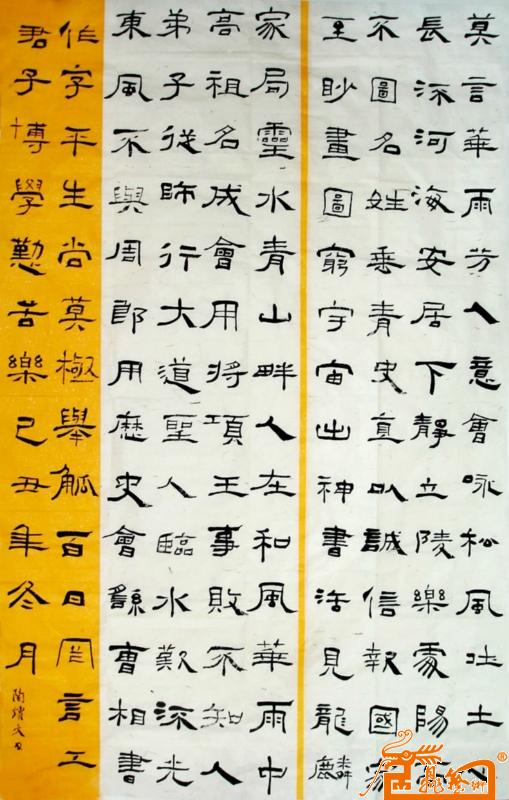 莫言華雨芳人意會咏松風吐土
長深河海安居下靜立陵樂處陽高
不圖名姓垂青史直以誠信報國家
至眇畫圖窮宇宙出神書活見龍麟
家局靈水青山畔人在和風華雨中
高祖名成會用將項王事敗不知人
弟子從師行大道聖人臨水歎深光
東風不與周郎用歷史會繇曹相書
作字平生尚莫極舉觚百日罔言工
君子博學勤苦樂己丑年冬月